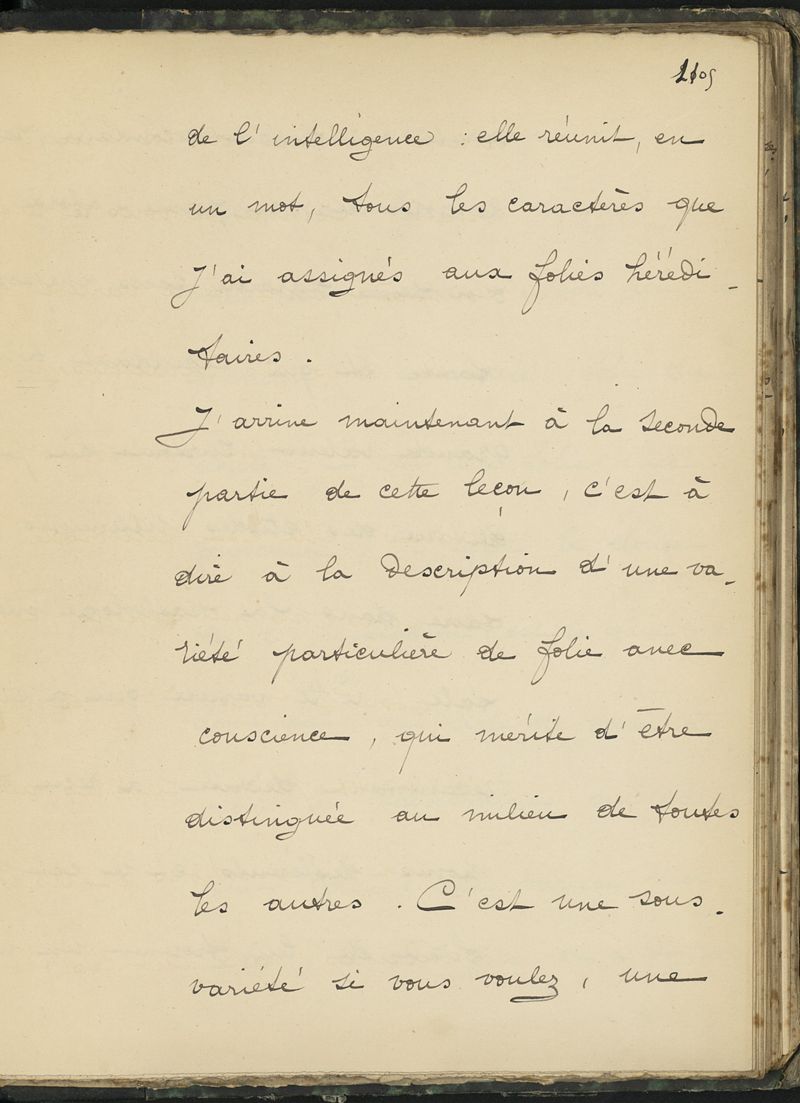 de l'intelligence : elle réunit, en
un mot, tous les caractères que
J'ai assignés aux folies hérédi-
taires.
J'arrive maintenant à la seconde
partie de cette leçon, c'est à
dire à la description d'une va-
riété particulière de folie avec
conscience, qui mérite d'être
distinguée au milieu de toutes
les autres. C'est une sous-
variété si vous voulez, une